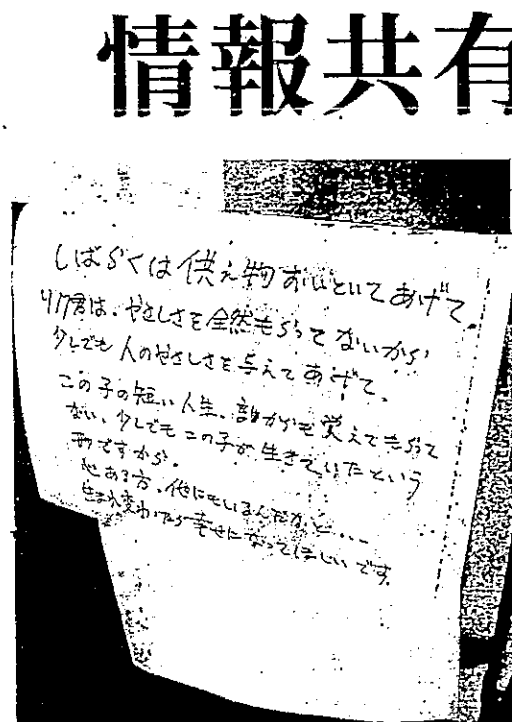 情報共有
しばらくは供え物おいといてあげて
リク君は、やさしさを全然もらってないから
少しでも人のやさしさを与えてあげて。
この子の短い人生、誰からも覚えてもらって
ない、少しでもこの子が生きていたという
ですから。
ある方、他にもいるんだなと…
生まれ変わったら幸せになってほしいです。